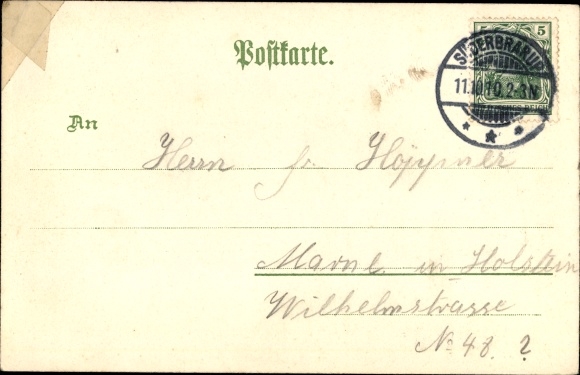 Postkarte.
5 5
SÜDERBRARUP
11. 10. 2-3N
An
Herrn Höppner
Marne in Holstein
Wilhelmstrasse
No 48. 2